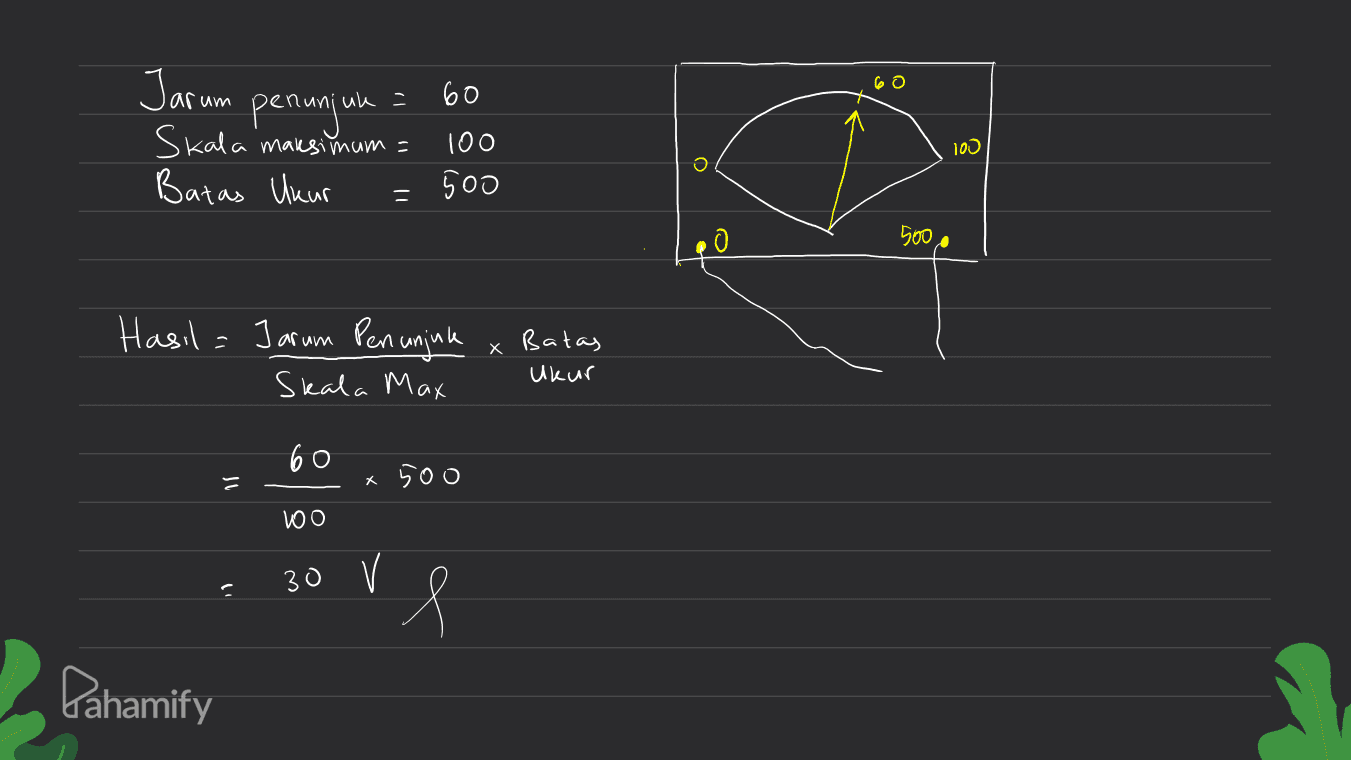 Jarum penunjuk = 60
Skala maksimum = 100
Batas Ukur = 500
60
0
100
0
500
Hasil = Jarum Penunjuk x Batas Ukur
Skala Max
= 60 x 500
100
= 30 V
Pahamify